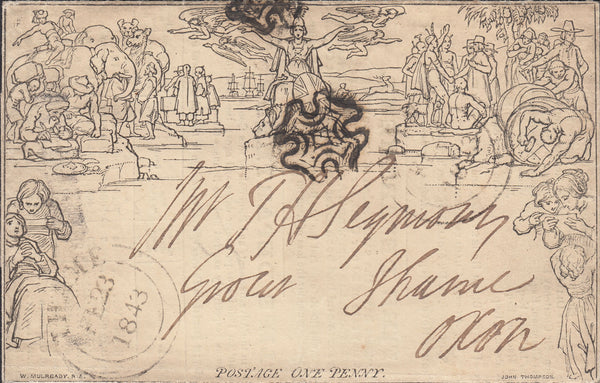 Mr T H Seymour
Grocer Thame
Oxon
THAME
MR 23
1843
POSTAGE ONE PENNY.
W. MULREADY. R.A.
JOHN THOMPSON